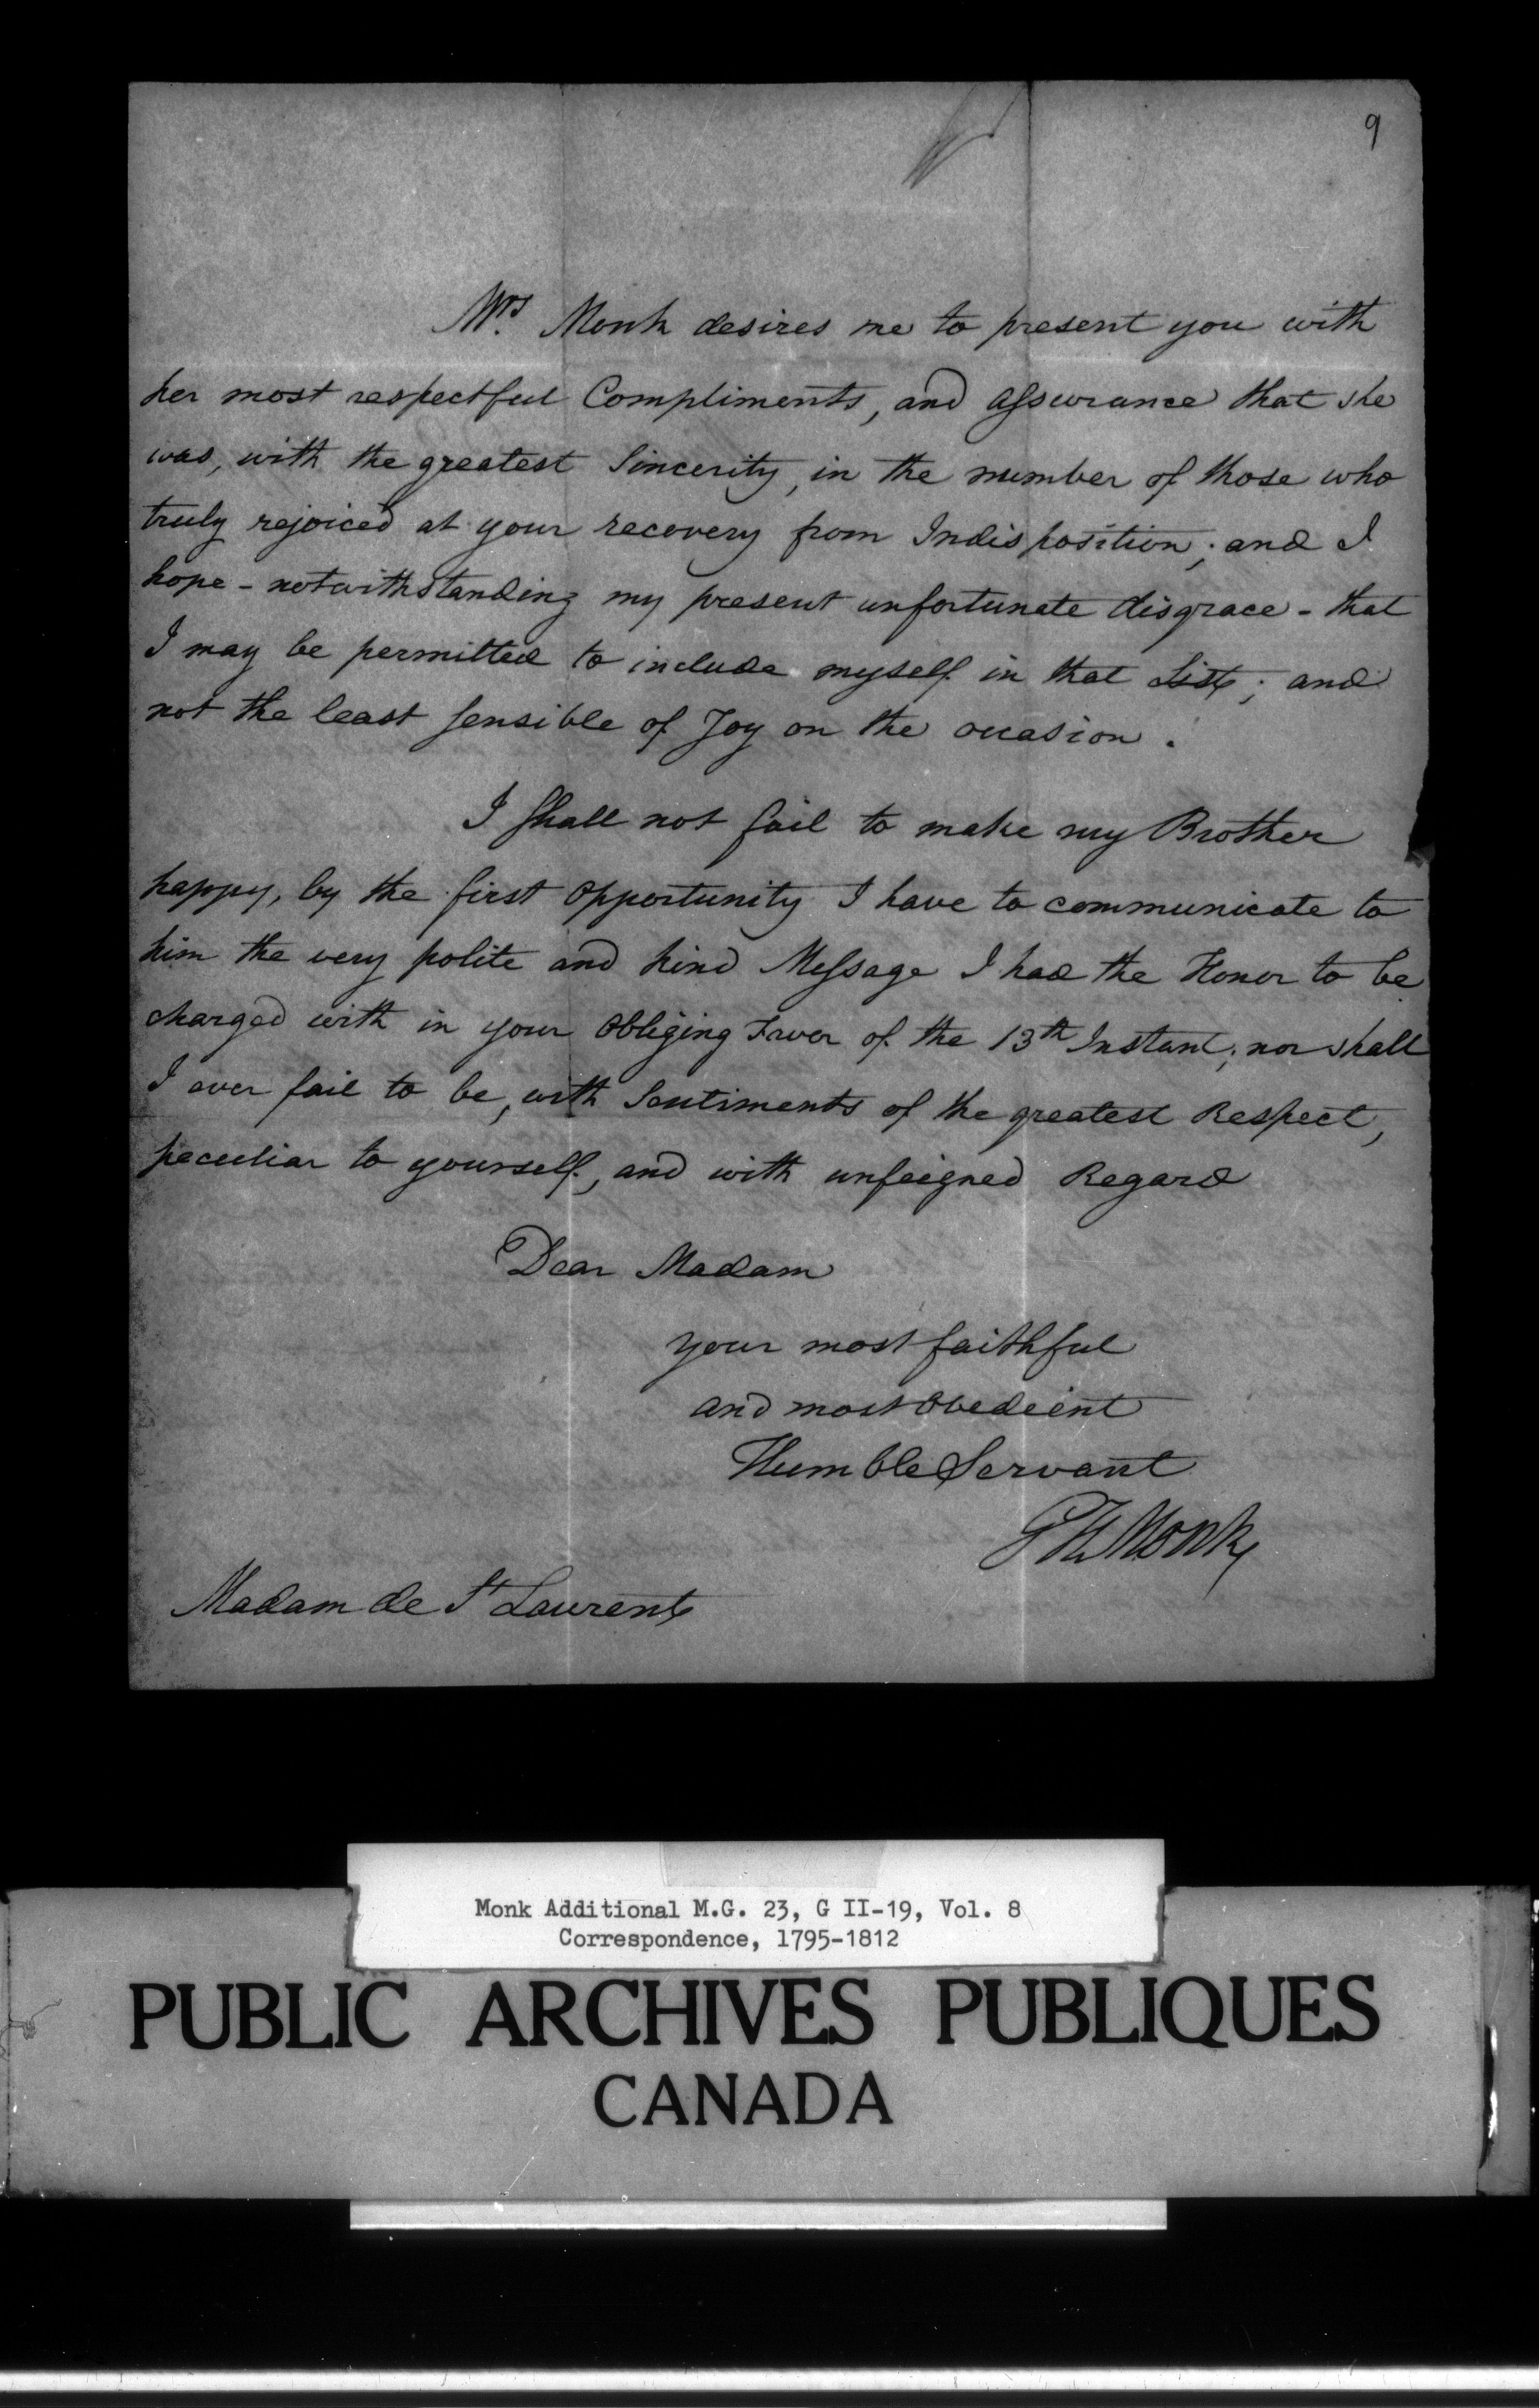 9
Mrs. Monk desires me to present you with
her most respectful Compliments, and assurance that she
was, with the greatest Sincerity, in the number of those who
truly rejoiced at your recovery from Indisposition; and I
hope - notwithstanding my present unfortunate disgrace - that
I may be permitted to include myself in that List; and
not the least sensible of Joy on the occasion.
I shall not fail to make my Brother
happy, by the first opportunity I have to communicate to
him the very polite and kind Message I had the Honor to be
charged with in your Obliging Favor of the 13th Instant; nor shall
I ever fail to be, with Sentiments of the greatest Respect,
peculiar to yourself, and with unfeigned Regard
Dear Madam
your most faithful
and most Obedient
Humble Servant
G H Monk
Madam de St Laurent
Monk Additional M.G. 23, G II-19, Vol. 8
Correspondence, 1795-1812
PUBLIC ARCHIVES PUBLIQUES
CANADA